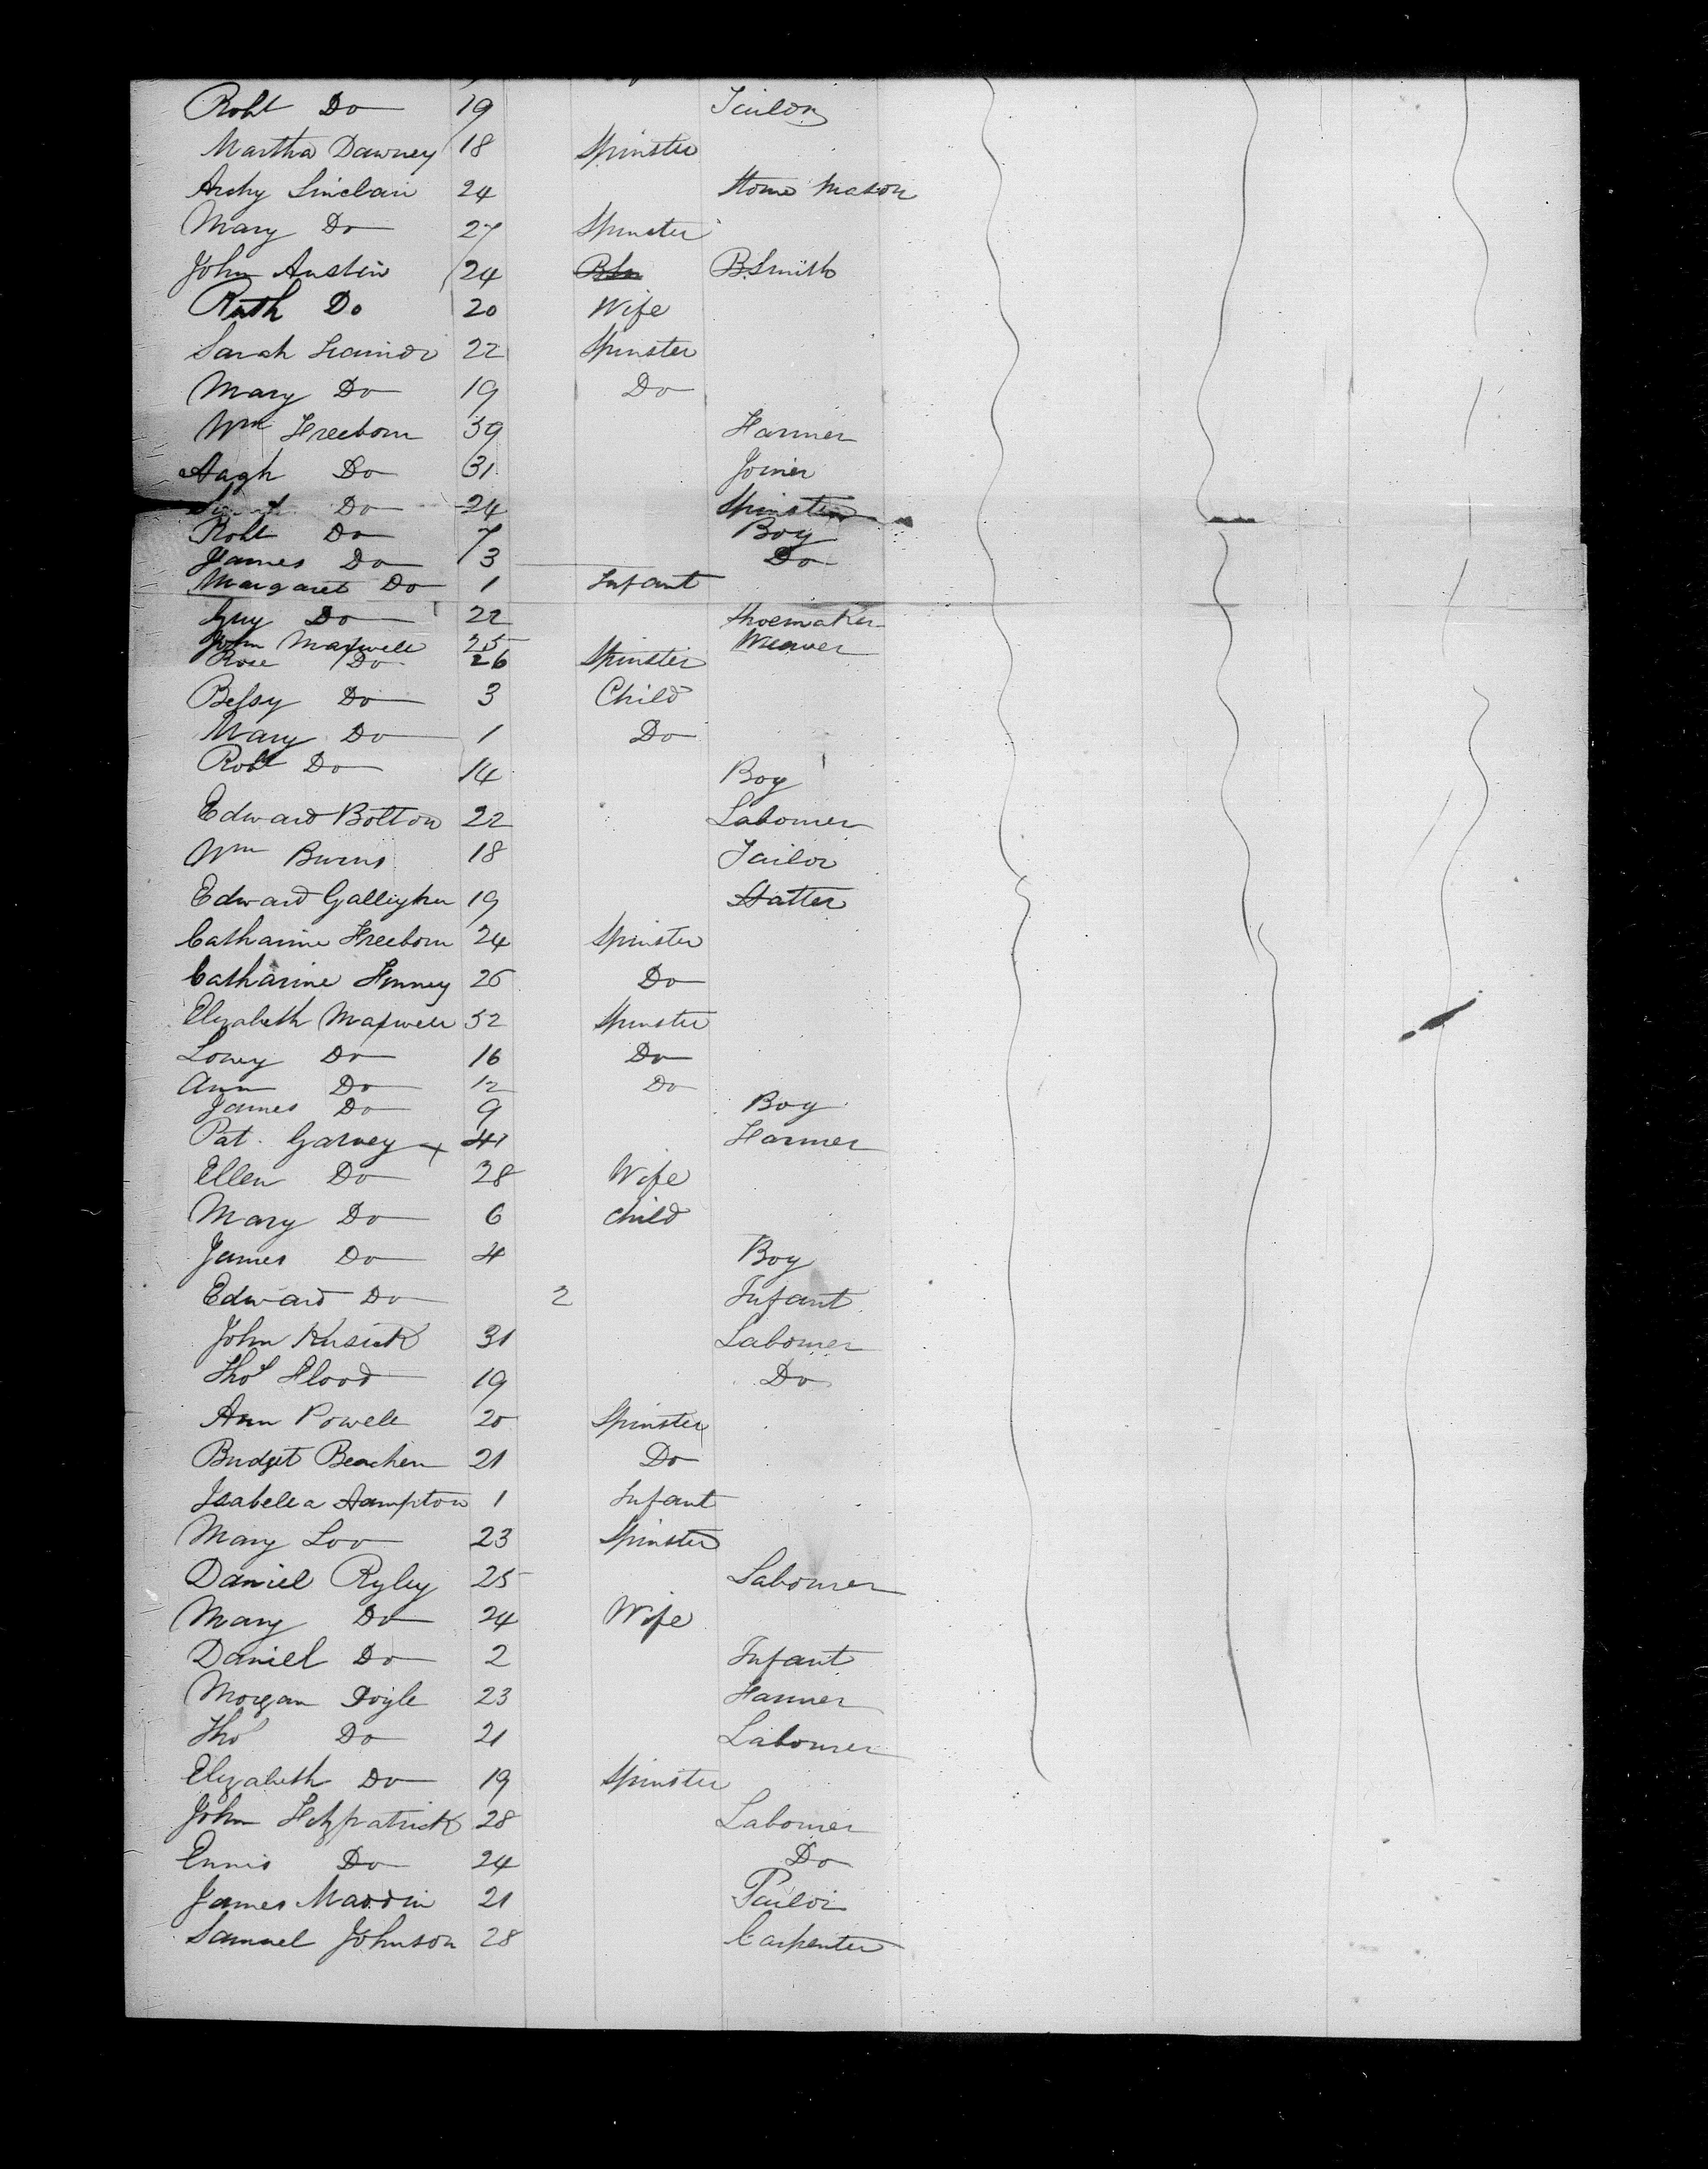 Robt Do 19 Tailor
Martha Dawney 18 Spinster
Archy Sinclair 24 Stone Mason
Mary Do 27 Spinster
John Austin 24 BSm BSmith
Ruth Do 20 Wife
Sarah 22 Spinster
Mary Do 19 Do
Wm Freeborn 39 Farmer
Hugh Do 31 Joiner
Do 24 Spinster
Robt Do 7 Boy
James Do 3 Do
Margaret Do 1 Infant
Guy Do 22 Shoemaker
John Maxwell 25 Weaver
Rose Do 26 Spinster
Betsy Do 3 Child
Mary Do 1 Do
Robt Do 14 Boy
Edward Bolton 22 Labourer
Wm Burns 18 Tailor
Edward Galligher 19 Hatter
Catharine Freeborn 24 Spinster
Catharine Finney 26 Do
Elizabeth Maxwell 52 Spinster
Do 16 Do
Ann Do 12 Do
James Do 9 Boy
Pat. Garvey + 41 Farmer
Ellen Do 38 Wife
Mary Do 6 Child
James Do 4 Boy
Edward Do 2 Infant
John Kusick 31 Labourer
Thos Flood 19 Do
Ann Powell 20 Spinster
Bridget 21 Do
Isabella Hampton 1 Infant
Mary 23 Spinster
Daniel Ryley 25 Labourer
Mary Do 24 Wife
Daniel Do 2 Infant
Morgan Doyle 23 Farmer
Thos Do 21 Labourer
Elizabeth Do 19 Spinster
John Fitzpatrick 28 Labourer
Ennis Do 24 Do
James 21 Tailor
Samuel Johnson 28 Carpenter